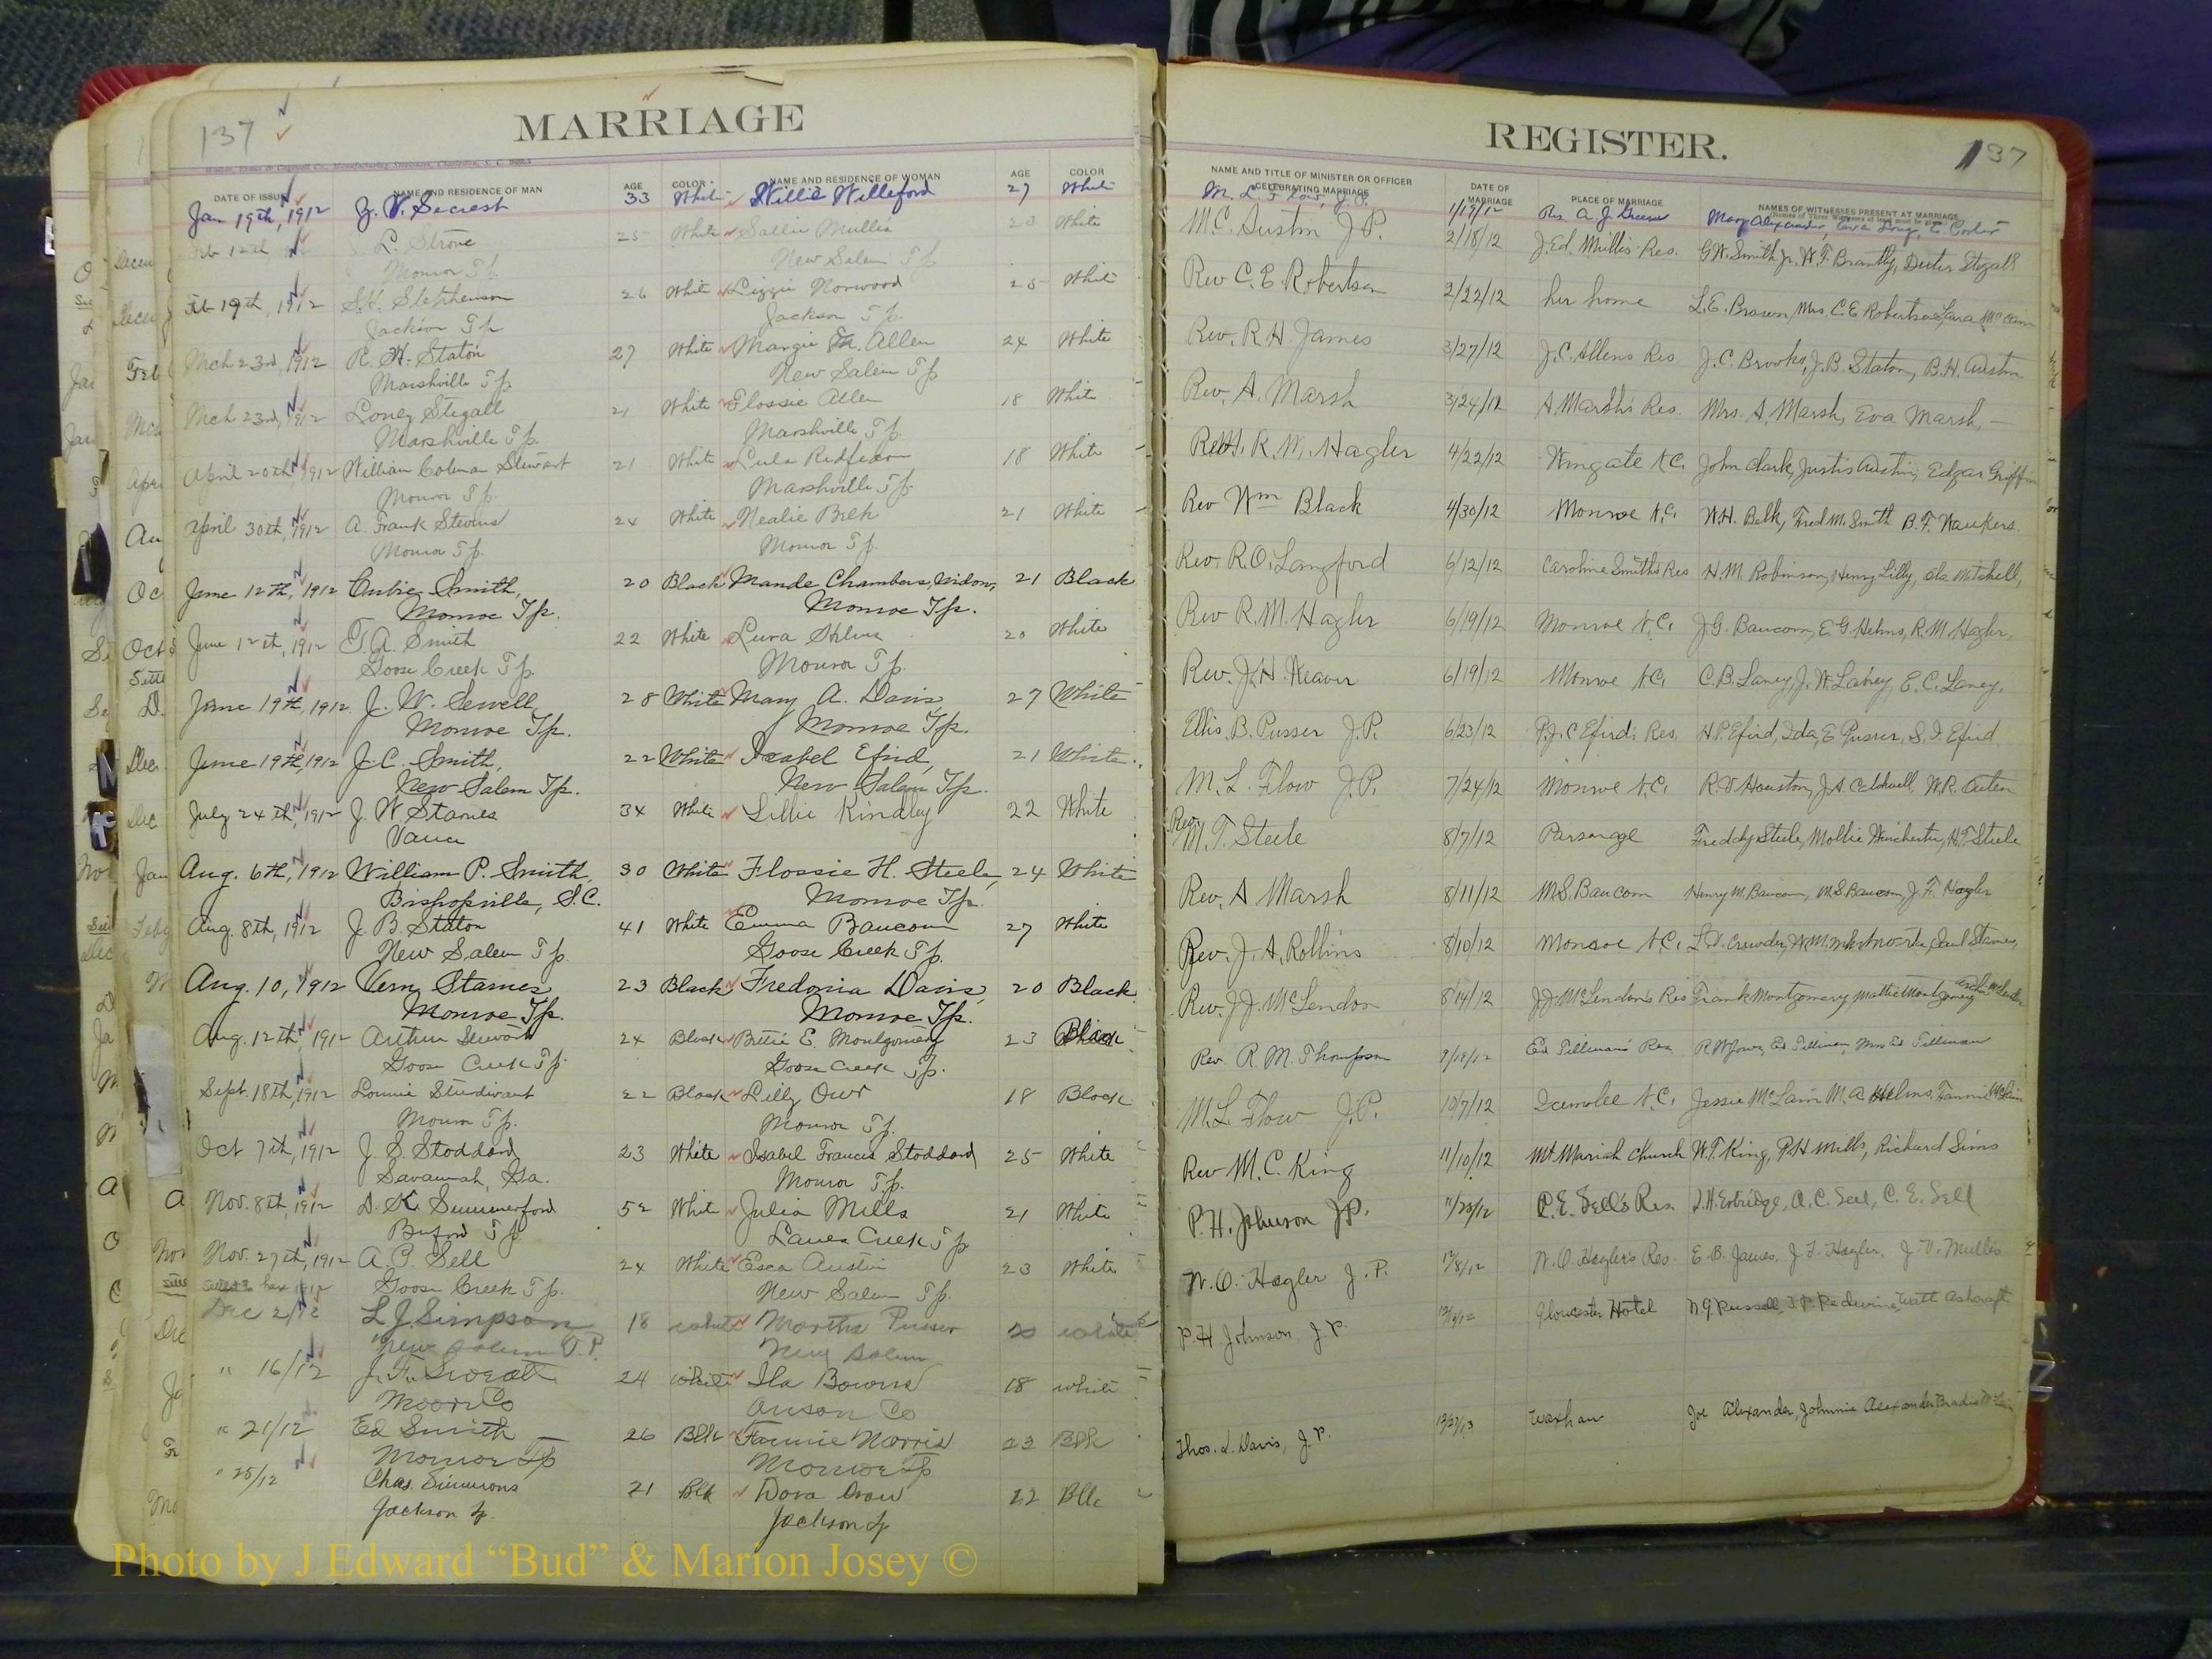 137
MARRIAGE
DATE OF ISSUE NAME AND RESIDENCE OF MAN AGE COLOR NAME AND RESIDENCE OF WOMAN AGE COLOR
Jan 19th, 1912 J. V. Secrest 33 White Willie Willeford 27 White
Feb 12th L. Strove 25 White Sallie Mullis 23 White
Monroe Tp. New Salem Tp
Feb 19th, 1912 Stephenson 26 White Lizzie Norwood 25 White
Jackson Tp Jackson Tp.
Mch 23rd, 1912 R. H. Staton 27 White Margie M. Allen 24 White
Marshville Tp. New Salem Tp
Mch 23rd, 1912 Loney Stegall 21 White Flossie Allen 18 White
Marshville Tp. Marshville Tp.
April 20th, 1912 William Coleman Stewart 21 White Lula Redfearn 18 White
Monroe Tp. Marshville Tp.
April 30th, 1912 A. Frank Stevens 24 White Nealie Belk 21 White
Monroe Tp. Monroe Tp.
June 12th, 1912 Aubie Smith, 20 Black Maude Chambers, Widow, 21 Black
Monroe Tp. Monroe Tp.
June 12th, 1912 T. A. Smith 22 White Lura Helms 20 White
Goose Creek Tp. Monroe Tp.
June 19th, 1912 J. W. Sewell, 28 White Mary A. Davis, 27 White
Monroe Tp. Monroe Tp.
June 19th, 1912 J. C. Smith, 22 White Isabel Efird, 21 White
New Salem Tp. New Salem Tp.
July 24th, 1912 J. W Starnes 34 White Lillie Kindley 22 White
Vance
Aug. 6th, 1912 William P. Smith, 30 White Flossie H. Steele, 24 White
Bishopville, S.C. Monroe Tp.
Aug. 8th, 1912 J. B. Staton 41 White Emma Baucom 27 White
New Salem Tp. Goose Creek Tp.
Aug. 10, 1912 Vern Starnes 23 Black Fredonia Davis, 20 Black
Monroe Tp. Monroe Tp.
Aug. 12th, 1912 Arthur Stewart 24 Black Bettie E. Montgomery 23 Black
Goose Creek Tp. Goose Creek Tp.
Sept. 18th, 1912 Lonnie Sturdivant 22 Black Lilly Owr 18 Black
Monroe Tp. Monroe Tp.
Oct 7th, 1912 J. S. Stoddard 23 White Isabel Frances Stoddard 25 White
Savannah, Ga. Monroe Tp.
Nov. 8th, 1912 D. K. Summerford 52 White Julia Mills 21 White
Buford Tp Lanes Creek Tp
Nov. 27th, 1912 A. B. Sell 24 White Esca Austin 23 White
Goose Creek Tp. New Salem Tp.
Dec 2/12 L J Simpson 18 white Martha Pusser 20 white
New Salem T.P. New Salem
" 16/12 J. F. Sweatt 24 white Ila Bowers 18 white
Moore Co Anson Co
" 21/12 Ed Smith 26 Blk Fannie Norris 22 Blk
Monroe Tp Monroe Tp
" 25/12 Chas. Simmons 21 Blk Dora Crow 22 Blk
Jackson Tp. Jackson Tp
REGISTER.
137
NAME AND TITLE OF MINISTER OR OFFICER CELEBRATING MARRIAGE DATE OF MARRIAGE PLACE OF MARRIAGE NAMES OF WITNESSES PRESENT AT MARRIAGE
M. L. Flow, J.P. 1/19/12 Res. A. J. Greene Mary Alexander,
M.C. Austin J.P. 2/18/12 J. Ed. Mullis Res. G.W. Smith Jr. W. F. Brantly, Dexter Stegall
Rev C. E Robertson 2/22/12 her home L.E. Brown, Mrs. C.E Robertson, Lara McCann
Rev. R H James 3/27/12 J.C. Allens Res J.C. Brooks, J.B. Staton, B.H. Austin
Rev. A. Marsh 3/24/12 A Marsh's Res. Mrs. A. Marsh, Eva Marsh, —
Rev. R. M. Hagler 4/22/12 Wingate N.C. John Clark, Justis Austin, Edgar Griffin
Rev Wm Black 4/30/12 Monroe N.C. W.H. Belk, Fred M. Smith B.F.
Rev. R.O. Langford 6/12/12 Caroline Smiths Res H.M. Robinson, Henry Lilly, Ola Mitchell,
Rev R.M. Hagler 6/19/12 Monroe N.C. J.G. Baucom, E.G. Helms, R.M. Hagler,
Rev. J.H. Weaver 6/19/12 Monroe N.C. C.B. Laney, J.W. Laney, E.C. Laney.
Ellis. B. Pusser J.P. 6/23/12 P.J.C Efird. Res. H.P. Efird, Ida E Pusser, S.J. Efird
M. L. Flow J.P. 7/24/12 Monroe N.C. R.V Houston, J.A Caldwell, W.R. Outen
Rev. M. T. Steele 8/7/12 Parsonage Freddy Steele, Mollie Winchester, H.T. Steele
Rev. A Marsh 8/11/12 M.S. Baucom Henry M. Baucom, M.S. Baucom, J.F. Hagler
Rev. J. A. Rollins 8/10/12 Monroe N.C. L.D. Crowder, Paul Starnes,
Rev. J.J. McLendon 8/14/12 J.J McLendon's Res Frank Montgomery Mattie Montgomery
Rev. R. M. Thompson 9/18/12 Ed Tillman's Res R.W. Jones, Ed Tillman, Mrs Ed Tillman
M. L. Flow J.P. 10/7/12 Icemorlee N.C. Jessie McLain M. A Helms, Fannie McLain
Rev M. C. King 11/10/12 Mt. Moriah Church W.T. King, P.H Mills, Richard Sims
P. H. Johnson J.P. 11/28/12 P.E. Sell's Res. A.C. Sell, C.E. Sell
W. O. Hagler J.P. 12/8/12 W.O. Hagler's Res. E. B. James, J. F. Hagler, J. V. Mullis
P. H Johnson J.P. 12/16/12 Gloucester Hotel N.G Russell, J.P. Redwine, Watt Ashcraft
Thos. L. Davis, J.P. 12/27/13 Waxhaw Joe Alexander, Johnnie Alexander
Photo by J Edward “Bud” & Marion Josey ©